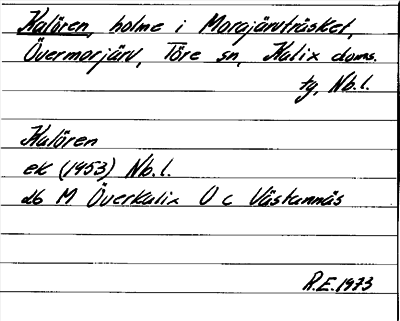 Kalören, holme i Morajärvträsket,
Övermorjärv, Töre sn, Kalix doms.
tg, Nb.l.
Kalören
ek (1953) Nb.l.
db M Överkalix O c Västannäs
R.E. 1973